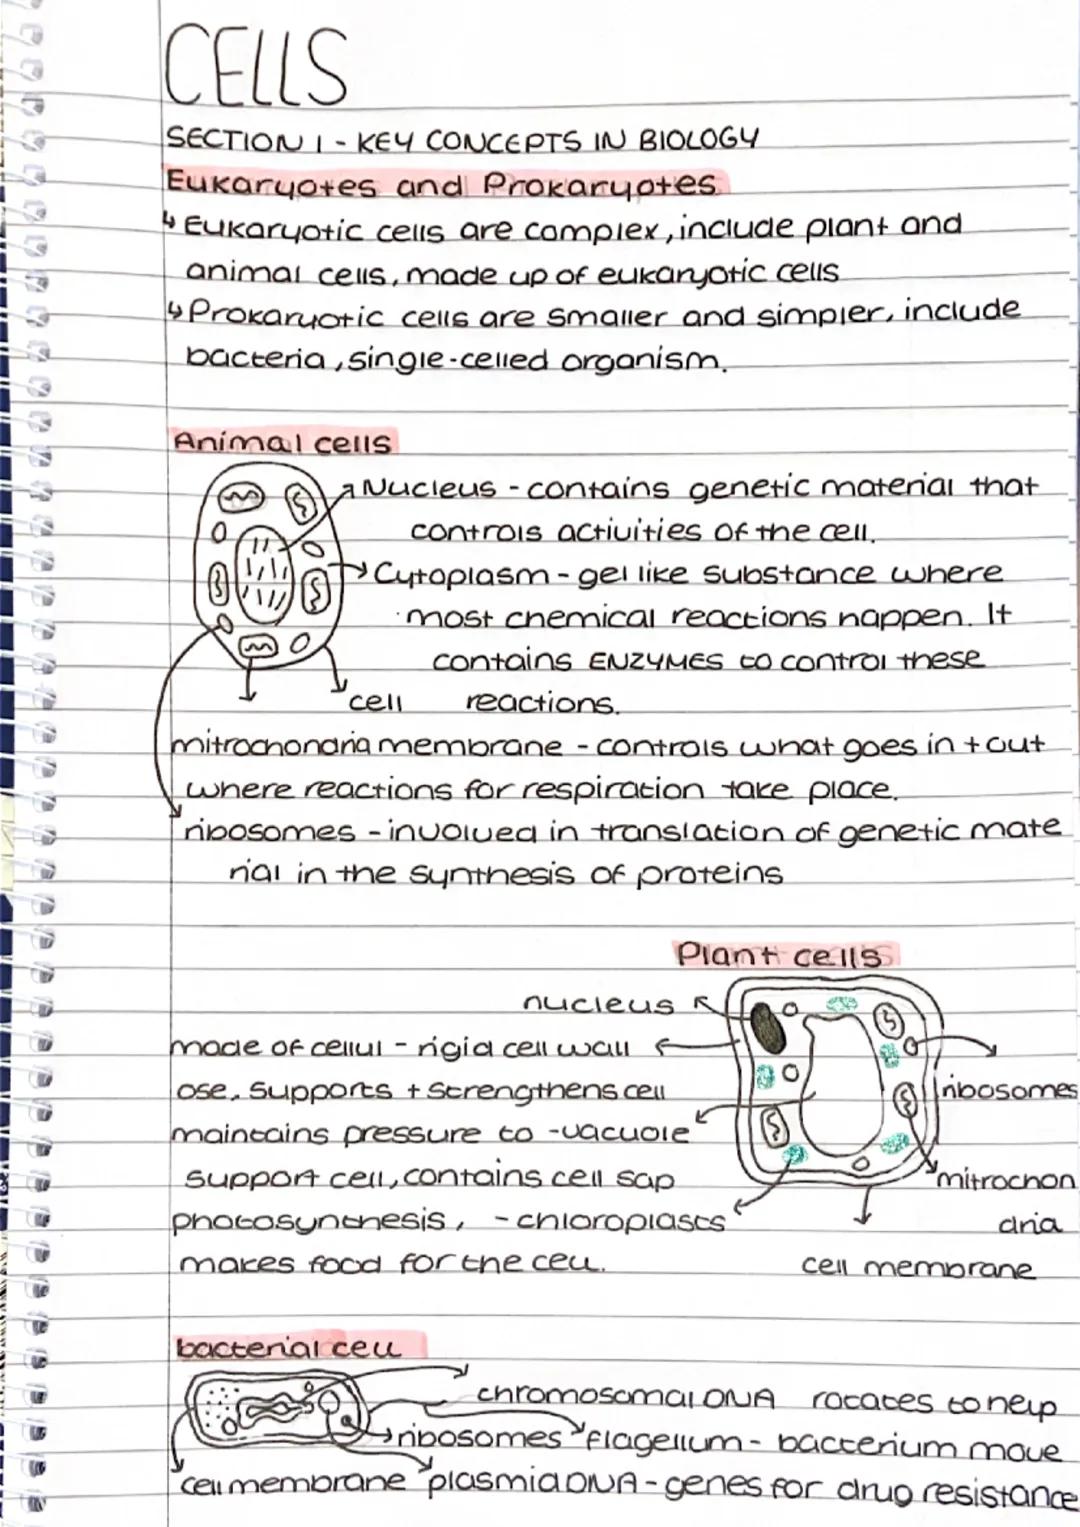 CELLS
SECTION 1 - KEY CONCEPTS IN BIOLOGY
Eukaryotes and Prokaryotes
↳ Eukaryotic cells are complex, include plant and
animal cells, made up of eukaryotic cells
↳ Prokaryotic cells are smaller and simpler, include
bacteria, single-celled organism.
Animal cells
Nucleus - contains genetic material that
controls activities of the cell.
Cytoplasm - gel like substance where
most chemical reactions happen. It
contains ENZYMES to control these
cell reactions.
mitrochondria membrane - controls what goes in + out
where reactions for respiration take place.
ribosomes - involved in translation of genetic mate
rial in the synthesis of proteins
Plant cells
nucleus
made of cellul - rigid cell wall
ose. Supports + strengthens cell
ribosomes
maintains pressure to - vacuole
support cell, contains cell sap
mitrochon
photosynthesis, - chloroplasts
dria
makes food for the cell.
cell membrane
bacterial cell
chromosomal DNA rotates to help
ribosomes flagellum - bacterium move
cell membrane plasmid DNA - genes for drug resistance